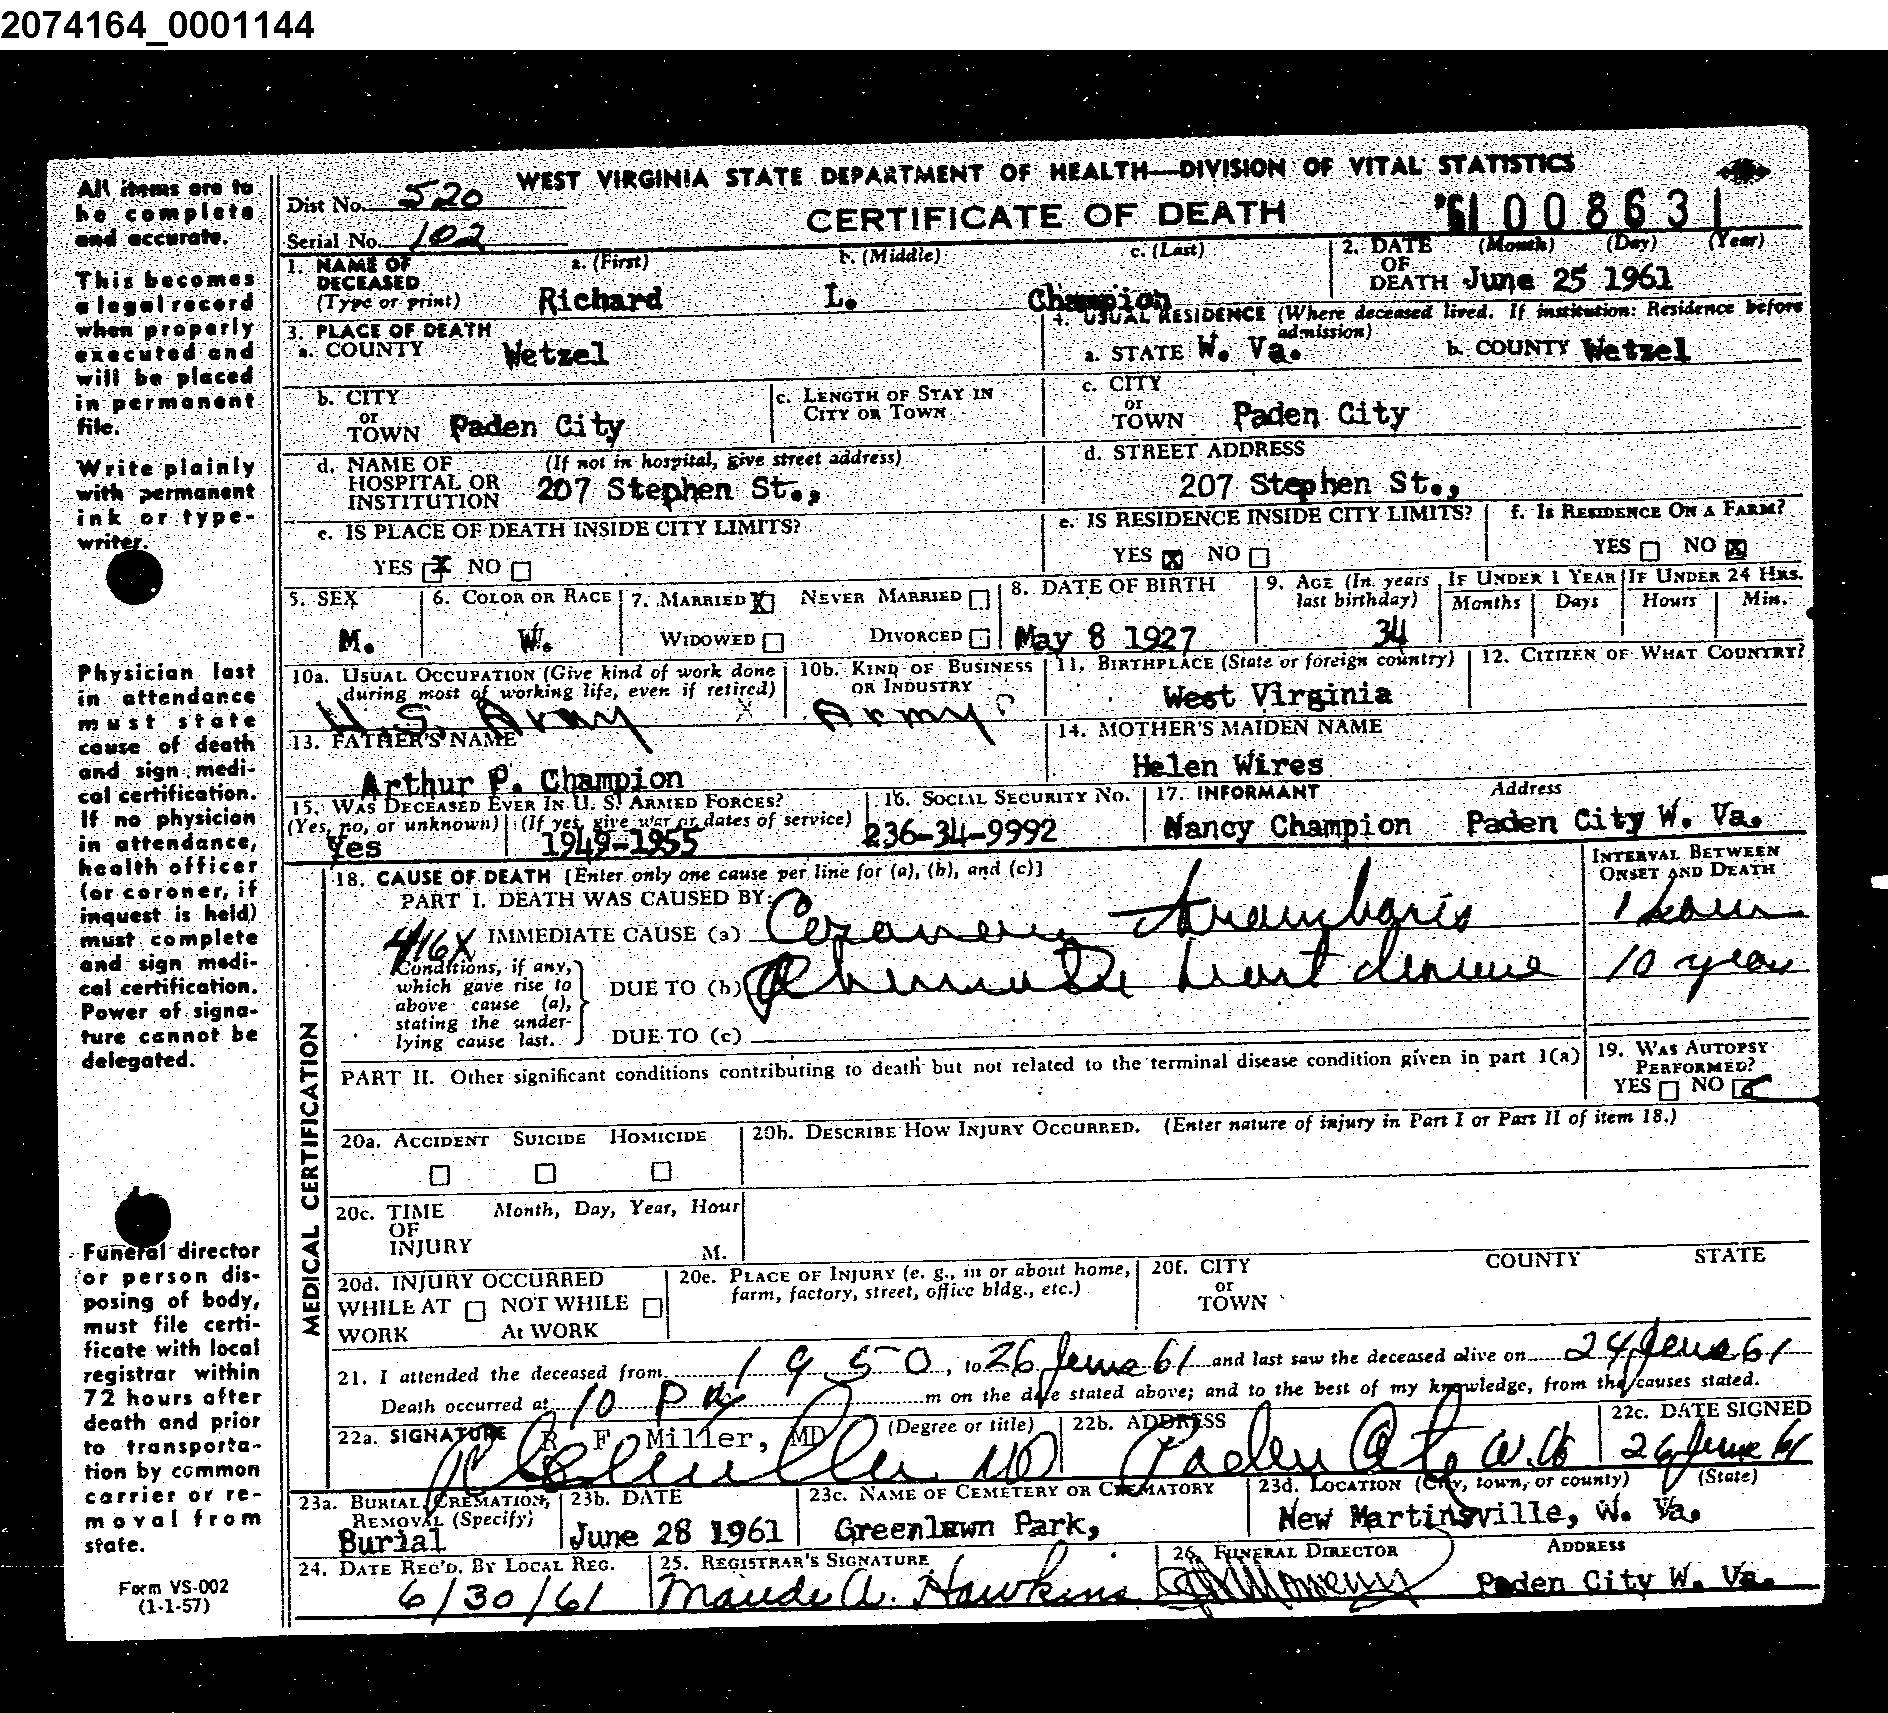 2074164_0001144
All items are to
be complete
and accurate.
This becomes
a legal record
when properly
executed and
will be placed
in permanent
file.
Write plainly
with permanent
ink or type-
writer.
Physician last
in attendance
must state
cause of death
and sign medi-
cal certification.
If no physician
in attendance,
health officer
(or coroner, if
inquest is held)
must complete
and sign medi-
cal certification.
Power of signa-
ture cannot be
delegated.
Funeral director
or person dis-
posing of body,
must file certi-
ficate with local
registrar within
72 hours after
death and prior
to transporta-
tion by common
carrier or re-
moval from
state.
Form VS-002
(1-1-57)
WEST VIRGINIA STATE DEPARTMENT OF HEALTH—DIVISION OF VITAL STATISTICS
Dist No. 520
CERTIFICATE OF DEATH
'61 008631
Serial No. 102
1. NAME OF DECEASED (Type or print) a. (First) b. (Middle) c. (Last)
Richard L. Champion
2. DATE OF DEATH (Month) (Day) (Year)
June 25 1961
3. PLACE OF DEATH
a. COUNTY Wetzel
4. USUAL RESIDENCE (Where deceased lived. If institution: Residence before admission)
a. STATE W. Va. b. COUNTY Wetzel
b. CITY or TOWN Paden City
c. LENGTH OF STAY IN CITY OR TOWN
c. CITY or TOWN Paden City
d. NAME OF HOSPITAL OR INSTITUTION (If not in hospital, give street address)
207 Stephen St.,
d. STREET ADDRESS
207 Stephen St.,
e. IS PLACE OF DEATH INSIDE CITY LIMITS?
YES X NO
e. IS RESIDENCE INSIDE CITY LIMITS?
YES X NO
f. IS RESIDENCE ON A FARM?
YES NO X
5. SEX M.
6. COLOR OR RACE W.
7. MARRIED X NEVER MARRIED
WIDOWED DIVORCED
8. DATE OF BIRTH
May 8 1927
9. AGE (In years last birthday)
34
IF UNDER 1 YEAR Months Days
IF UNDER 24 HRS. Hours Min.
10a. USUAL OCCUPATION (Give kind of work done during most of working life, even if retired)
U.S. Army
10b. KIND OF BUSINESS OR INDUSTRY
Army
11. BIRTHPLACE (State or foreign country)
West Virginia
12. CITIZEN OF WHAT COUNTRY?
13. FATHER'S NAME
Arthur P. Champion
14. MOTHER'S MAIDEN NAME
Helen Wires
15. WAS DECEASED EVER IN U. S. ARMED FORCES?
(Yes, no, or unknown) (If yes, give war or dates of service)
Yes 1949-1955
16. SOCIAL SECURITY NO.
236-34-9992
17. INFORMANT Address
Nancy Champion Paden City W. Va.
MEDICAL CERTIFICATION
18. CAUSE OF DEATH [Enter only one cause per line for (a), (b), and (c)]
INTERVAL BETWEEN ONSET AND DEATH
PART I. DEATH WAS CAUSED BY:
416X IMMEDIATE CAUSE (a) Coronary thrombosis 1 hour
Conditions, if any, which gave rise to above cause (a), stating the underlying cause last.
DUE TO (b) Rheumatic heart disease 10 years
DUE TO (c)
PART II. Other significant conditions contributing to death but not related to the terminal disease condition given in part I(a)
19. WAS AUTOPSY PERFORMED?
YES NO
20a. ACCIDENT SUICIDE HOMICIDE
20b. DESCRIBE HOW INJURY OCCURRED. (Enter nature of injury in Part I or Part II of item 18.)
20c. TIME OF INJURY Month, Day, Year, Hour
M.
20d. INJURY OCCURRED
WHILE AT WORK NOT WHILE At WORK
20e. PLACE OF INJURY (e. g., in or about home, farm, factory, street, office bldg., etc.)
20f. CITY or TOWN COUNTY STATE
21. I attended the deceased from 1950, to 26 June 61 and last saw the deceased alive on 24 June 61
Death occurred at 10 P m on the date stated above; and to the best of my knowledge, from the causes stated.
22a. SIGNATURE R F Miller, MD (Degree or title)
22b. ADDRESS
Paden City W. Va
22c. DATE SIGNED
26 June 61
23a. BURIAL, CREMATION, REMOVAL (Specify)
Burial
23b. DATE
June 28 1961
23c. NAME OF CEMETERY OR CREMATORY
Greenlawn Park,
23d. LOCATION (City, town, or county) (State)
New Martinsville, W. Va.
24. DATE REC'D. BY LOCAL REG.
6/30/61
25. REGISTRAR'S SIGNATURE
Maude A. Hawkins
26. FUNERAL DIRECTOR ADDRESS
Paden City W. Va.